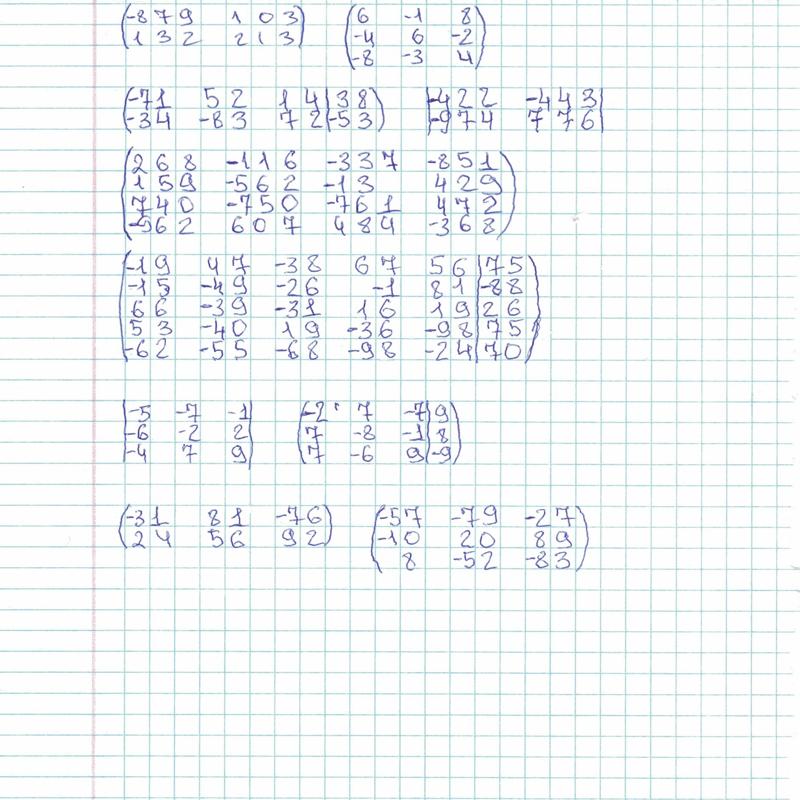 (-879 103) (6 -1 8)
(132 213) (-4 6 -2)
(-8 -3 4)
(-71 52 14|38) |-422 -443|
(-34 -83 72|-53) |-974 776|
(268 -116 -337 -851)
(159 -562 -13 429)
(740 -750 -761 472)
(-562 607 484 -368)
(-19 47 -38 67 56|75)
(-15 -49 -26 -1 81|-88)
(66 -39 -31 16 19|26)
(53 -40 19 -36 -98|75)
(-62 -55 -68 -98 -24|70)
|-5 -7 -1| (-2 7 -7|9)
|-6 -2 2| (7 -8 -1|8)
|-4 7 9| (7 -6 9|-9)
(-31 81 -76) (-57 -79 -27)
(24 56 92) (-10 20 89)
(8 -52 -83)